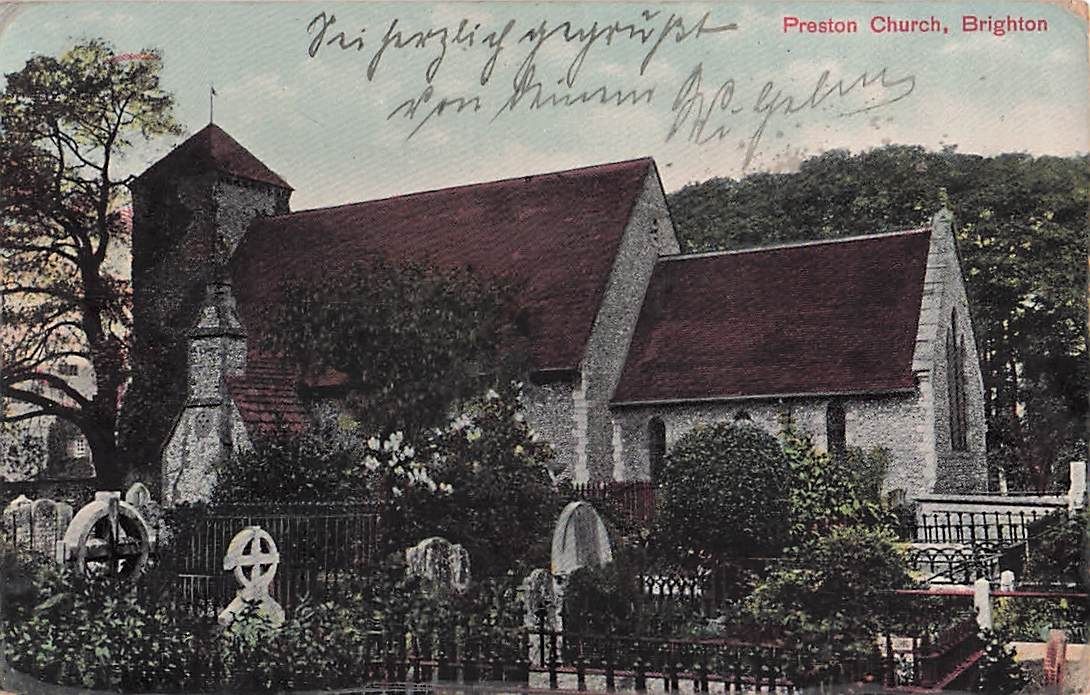 Preston Church, Brighton
Sei herzlich gegrüßt
von Deinem